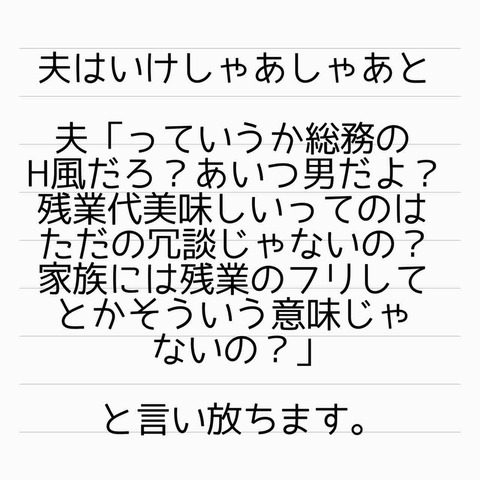 夫はいけしゃあしゃあと
夫「っていうか総務の
H風だろ？あいつ男だよ？
残業代美味しいってのは
ただの冗談じゃないの？
家族には残業のフリして
とかそういう意味じゃ
ないの？」
と言い放ちます。